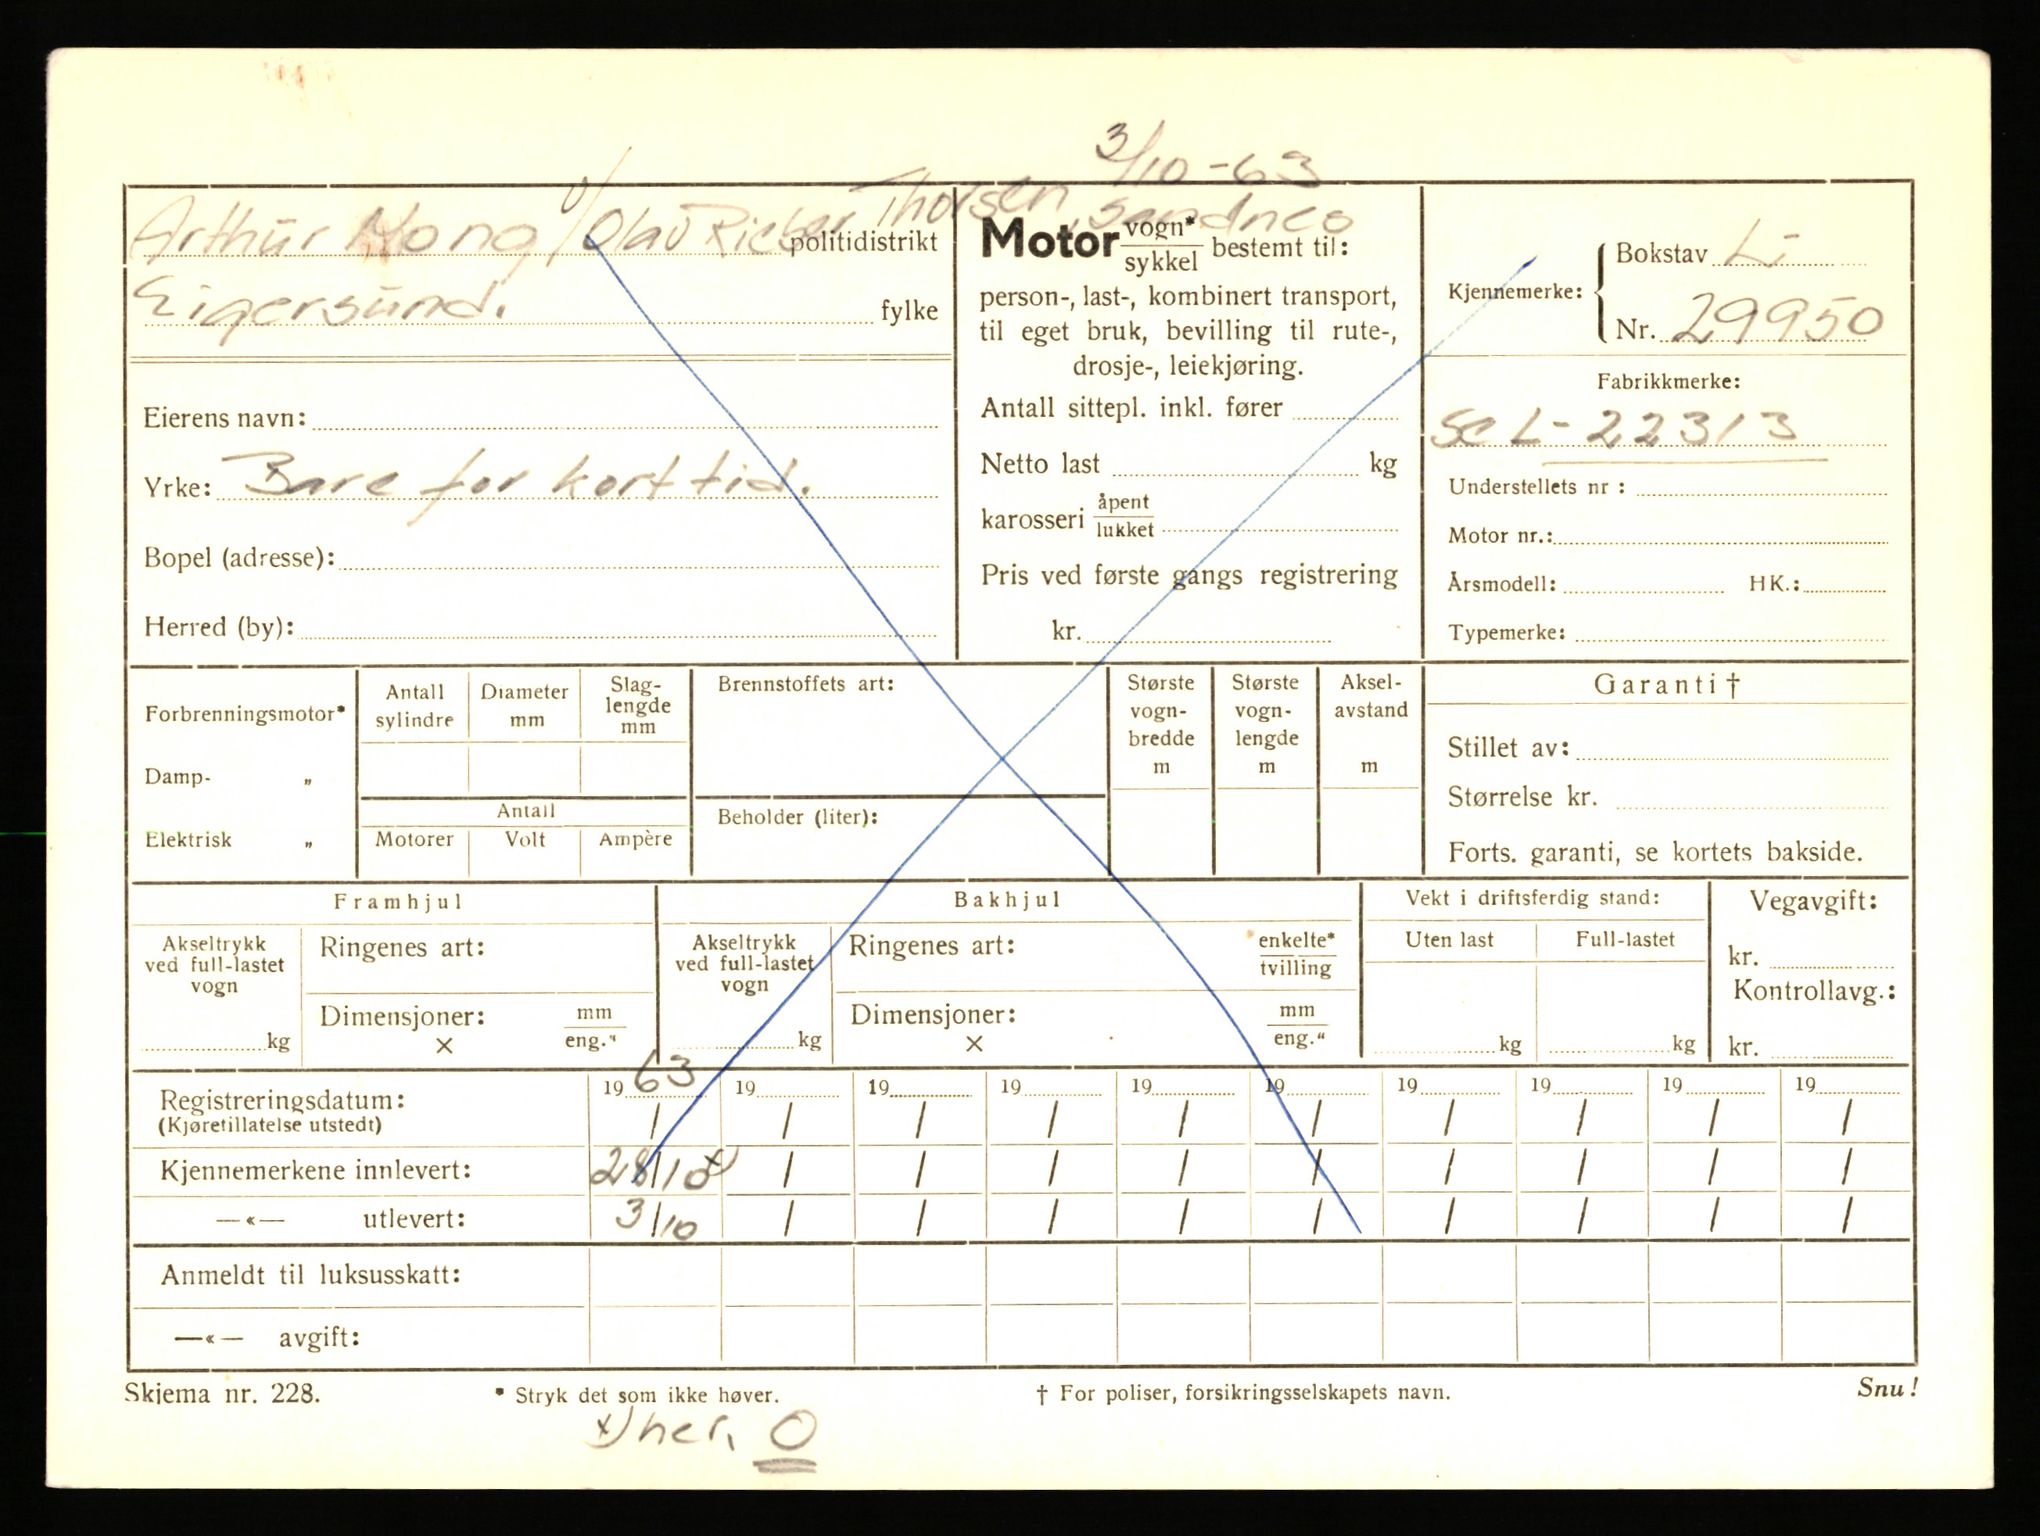 3/10-63
Arthur Mong v/Olav Rieber Thorsen, Sandnes
politidistrikt
Eigersund.
fylke
Eierens navn:
Yrke: Bare for kort tid.
Bopel (adresse):
Herred (by):
Motor vogn*
sykkel bestemt til:
person-, last-, kombinert transport,
til eget bruk, bevilling til rute-,
drosje-, leiekjøring.
Antall sittepl. inkl. fører
Netto last kg
karosseri åpent
lukket
Pris ved første gangs registrering
kr.
Kjennemerke: Bokstav L-
Nr. 29950
Fabrikkmerke:
se L-22313
Understellets nr :
Motor nr.:
Årsmodell: HK.:
Typemerke:
Forbrenningsmotor*
Damp- „
Elektrisk „
Antall
sylindre
Diameter
mm
Slag-
lengde
mm
Antall
Motorer Volt Ampère
Brennstoffets art:
Beholder (liter):
Største
vogn-
bredde
m
Største
vogn-
lengde
m
Aksel-
avstand
m
Garanti †
Stillet av:
Størrelse kr.
Forts. garanti, se kortets bakside.
Framhjul
Akseltrykk
ved full-lastet
vogn
kg
Ringenes art:
Dimensjoner: mm
× eng."
Bakhjul
Akseltrykk
ved full-lastet
vogn
kg
Ringenes art: enkelte*
tvilling
Dimensjoner: mm
× eng."
Vekt i driftsferdig stand:
Uten last Full-lastet
kg kg
Vegavgift:
kr.
Kontrollavg.:
kr.
Registreringsdatum: 1963 19 19 19 19 19 19 19 19 19
(Kjøretillatelse utstedt) / / / / / / / / / /
Kjennemerkene innlevert: 28/10 x) / / / / / / / / /
—«— utlevert: 3/10 / / / / / / / / /
Anmeldt til luksusskatt:
—«— avgift:
Skjema nr. 228. * Stryk det som ikke høver. † For poliser, forsikringsselskapets navn. Snu!
x) her. O